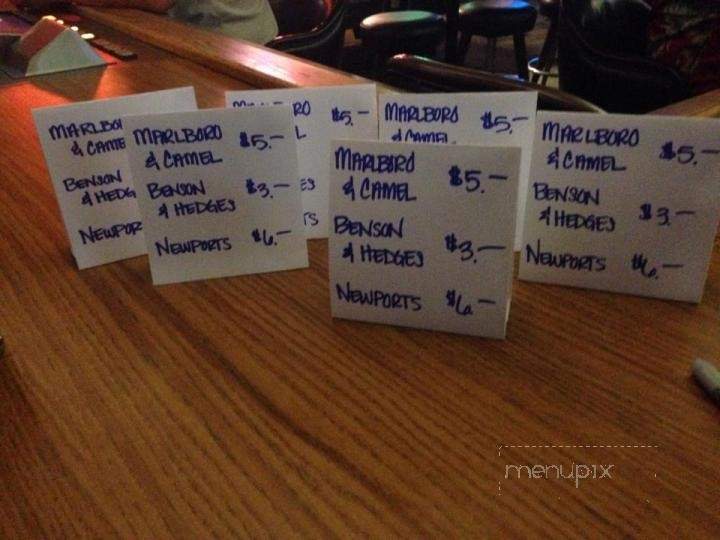 MARLBO
& CAME
BENSON
& HEDG
NEWPOR
MARLBORO $5.—
& CAMEL
BENSON $3.—
& HEDGES
NEWPORTS $6.—
RO $5.—
L
ES
TS
MARLBORO $5.—
& CAMEL
MARLBORO $5.—
& CAMEL
BENSON $3.—
& HEDGES
NEWPORTS $6.—
MARLBORO $5.—
& CAMEL
BENSON $3.—
& HEDGES
NEWPORTS $6.—
menupix